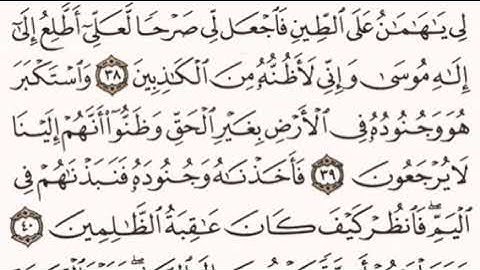 لِي يَٰهَٰمَٰنُ عَلَى ٱلطِّينِ فَٱجۡعَل لِّي صَرۡحٗا لَّعَلِّيٓ أَطَّلِعُ إِلَىٰٓ
إِلَٰهِ مُوسَىٰ وَإِنِّي لَأَظُنُّهُۥ مِنَ ٱلۡكَٰذِبِينَ ٣٨ وَٱسۡتَكۡبَرَ
هُوَ وَجُنُودُهُۥ فِي ٱلۡأَرۡضِ بِغَيۡرِ ٱلۡحَقِّ وَظَنُّوٓاْ أَنَّهُمۡ إِلَيۡنَا
لَا يُرۡجَعُونَ ٣٩ فَأَخَذۡنَٰهُ وَجُنُودَهُۥ فَنَبَذۡنَٰهُمۡ فِي
ٱلۡيَمِّۖ فَٱنظُرۡ كَيۡفَ كَانَ عَٰقِبَةُ ٱلظَّٰلِمِينَ ٤٠